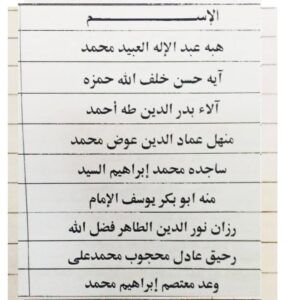 الإســـم
هبه عبد الإله العبيد محمد
آيه حسن خلف الله حمزه
آلاء بدر الدين طه أحمد
منهل عماد الدين عوض محمد
ساجده محمد إبراهيم السيد
منه ابو بكر يوسف الإمام
رزان نور الدين الطاهر فضل الله
رحيق عادل محجوب محمدعلى
وعد معتصم إبراهيم محمد